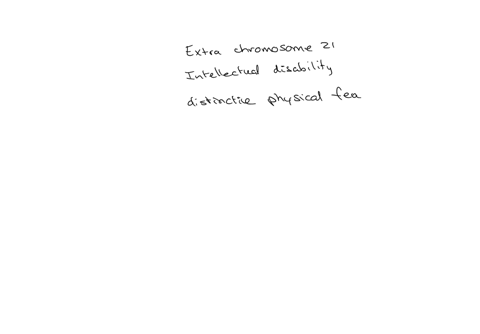 Extra chromosome 21
Intellectual disability
distinctive physical fea